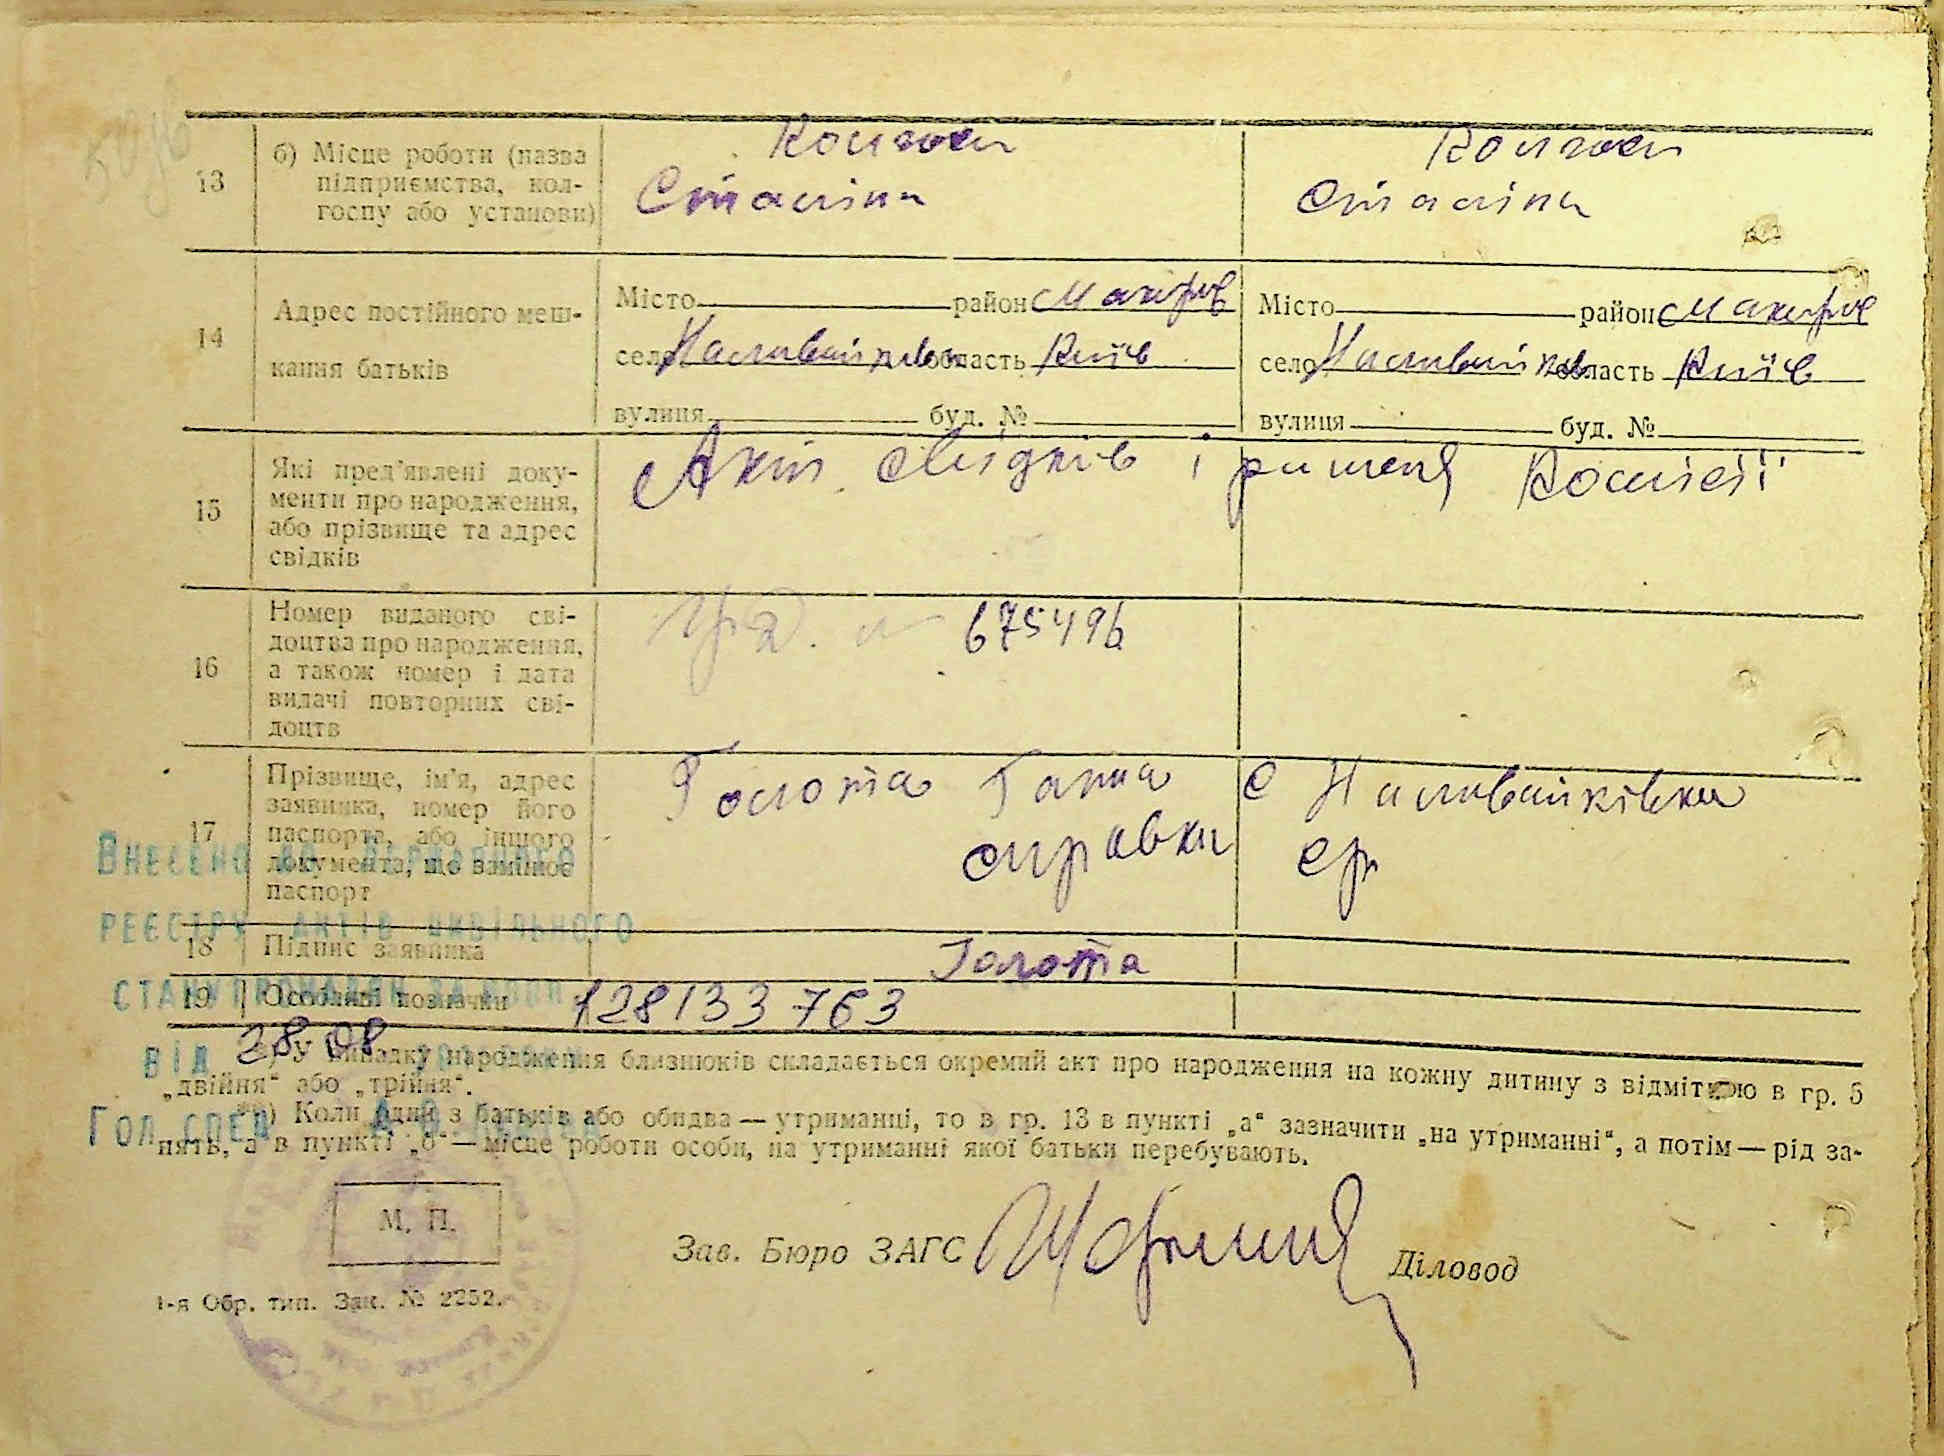 13
б) Місце роботи (назва
підприємства, кол-
госпу або установи)
Колгосп
Сталіна
Колгосп
Сталіна
14
Адрес постійного меш-
кання батьків
Місто район Макарів
село область Київ
вулиця буд. №
Місто район Макарів
село область Київ
вулиця буд. №
15
Які пред'явлені доку-
менти про народження,
або прізвище та адрес
свідків
Акт свідків і рішення Комісії
16
Номер виданого сві-
доцтва про народження,
а також номер і дата
видачі повторних сві-
доцтв
675496
17
Прізвище, ім'я, адрес
заявника, номер його
паспорта, або іншого
документа, що замінює
паспорт
Голота Ганна с Наливайківка
справки
18
Підпис заявника
Голота
19
Особливі позначки
128133763
Внесено до Державного
реєстру актів цивільного
стану громадян за
від 28 08
Гол спец
*) У випадку народження близнюків складається окремий акт про народження на кожну дитину з відміткою в гр. 5
„двійня“ або „трійня“.
**) Коли один з батьків або обидва — утриманці, то в гр. 13 в пункті „а“ зазначити „на утриманні“, а потім — рід за-
нять, а в пункті „б“ — місце роботи особи, на утриманні якої батьки перебувають.
М. П.
Зав. Бюро ЗАГС
Діловод
1-я Обр. тип. Зак. № 2252.